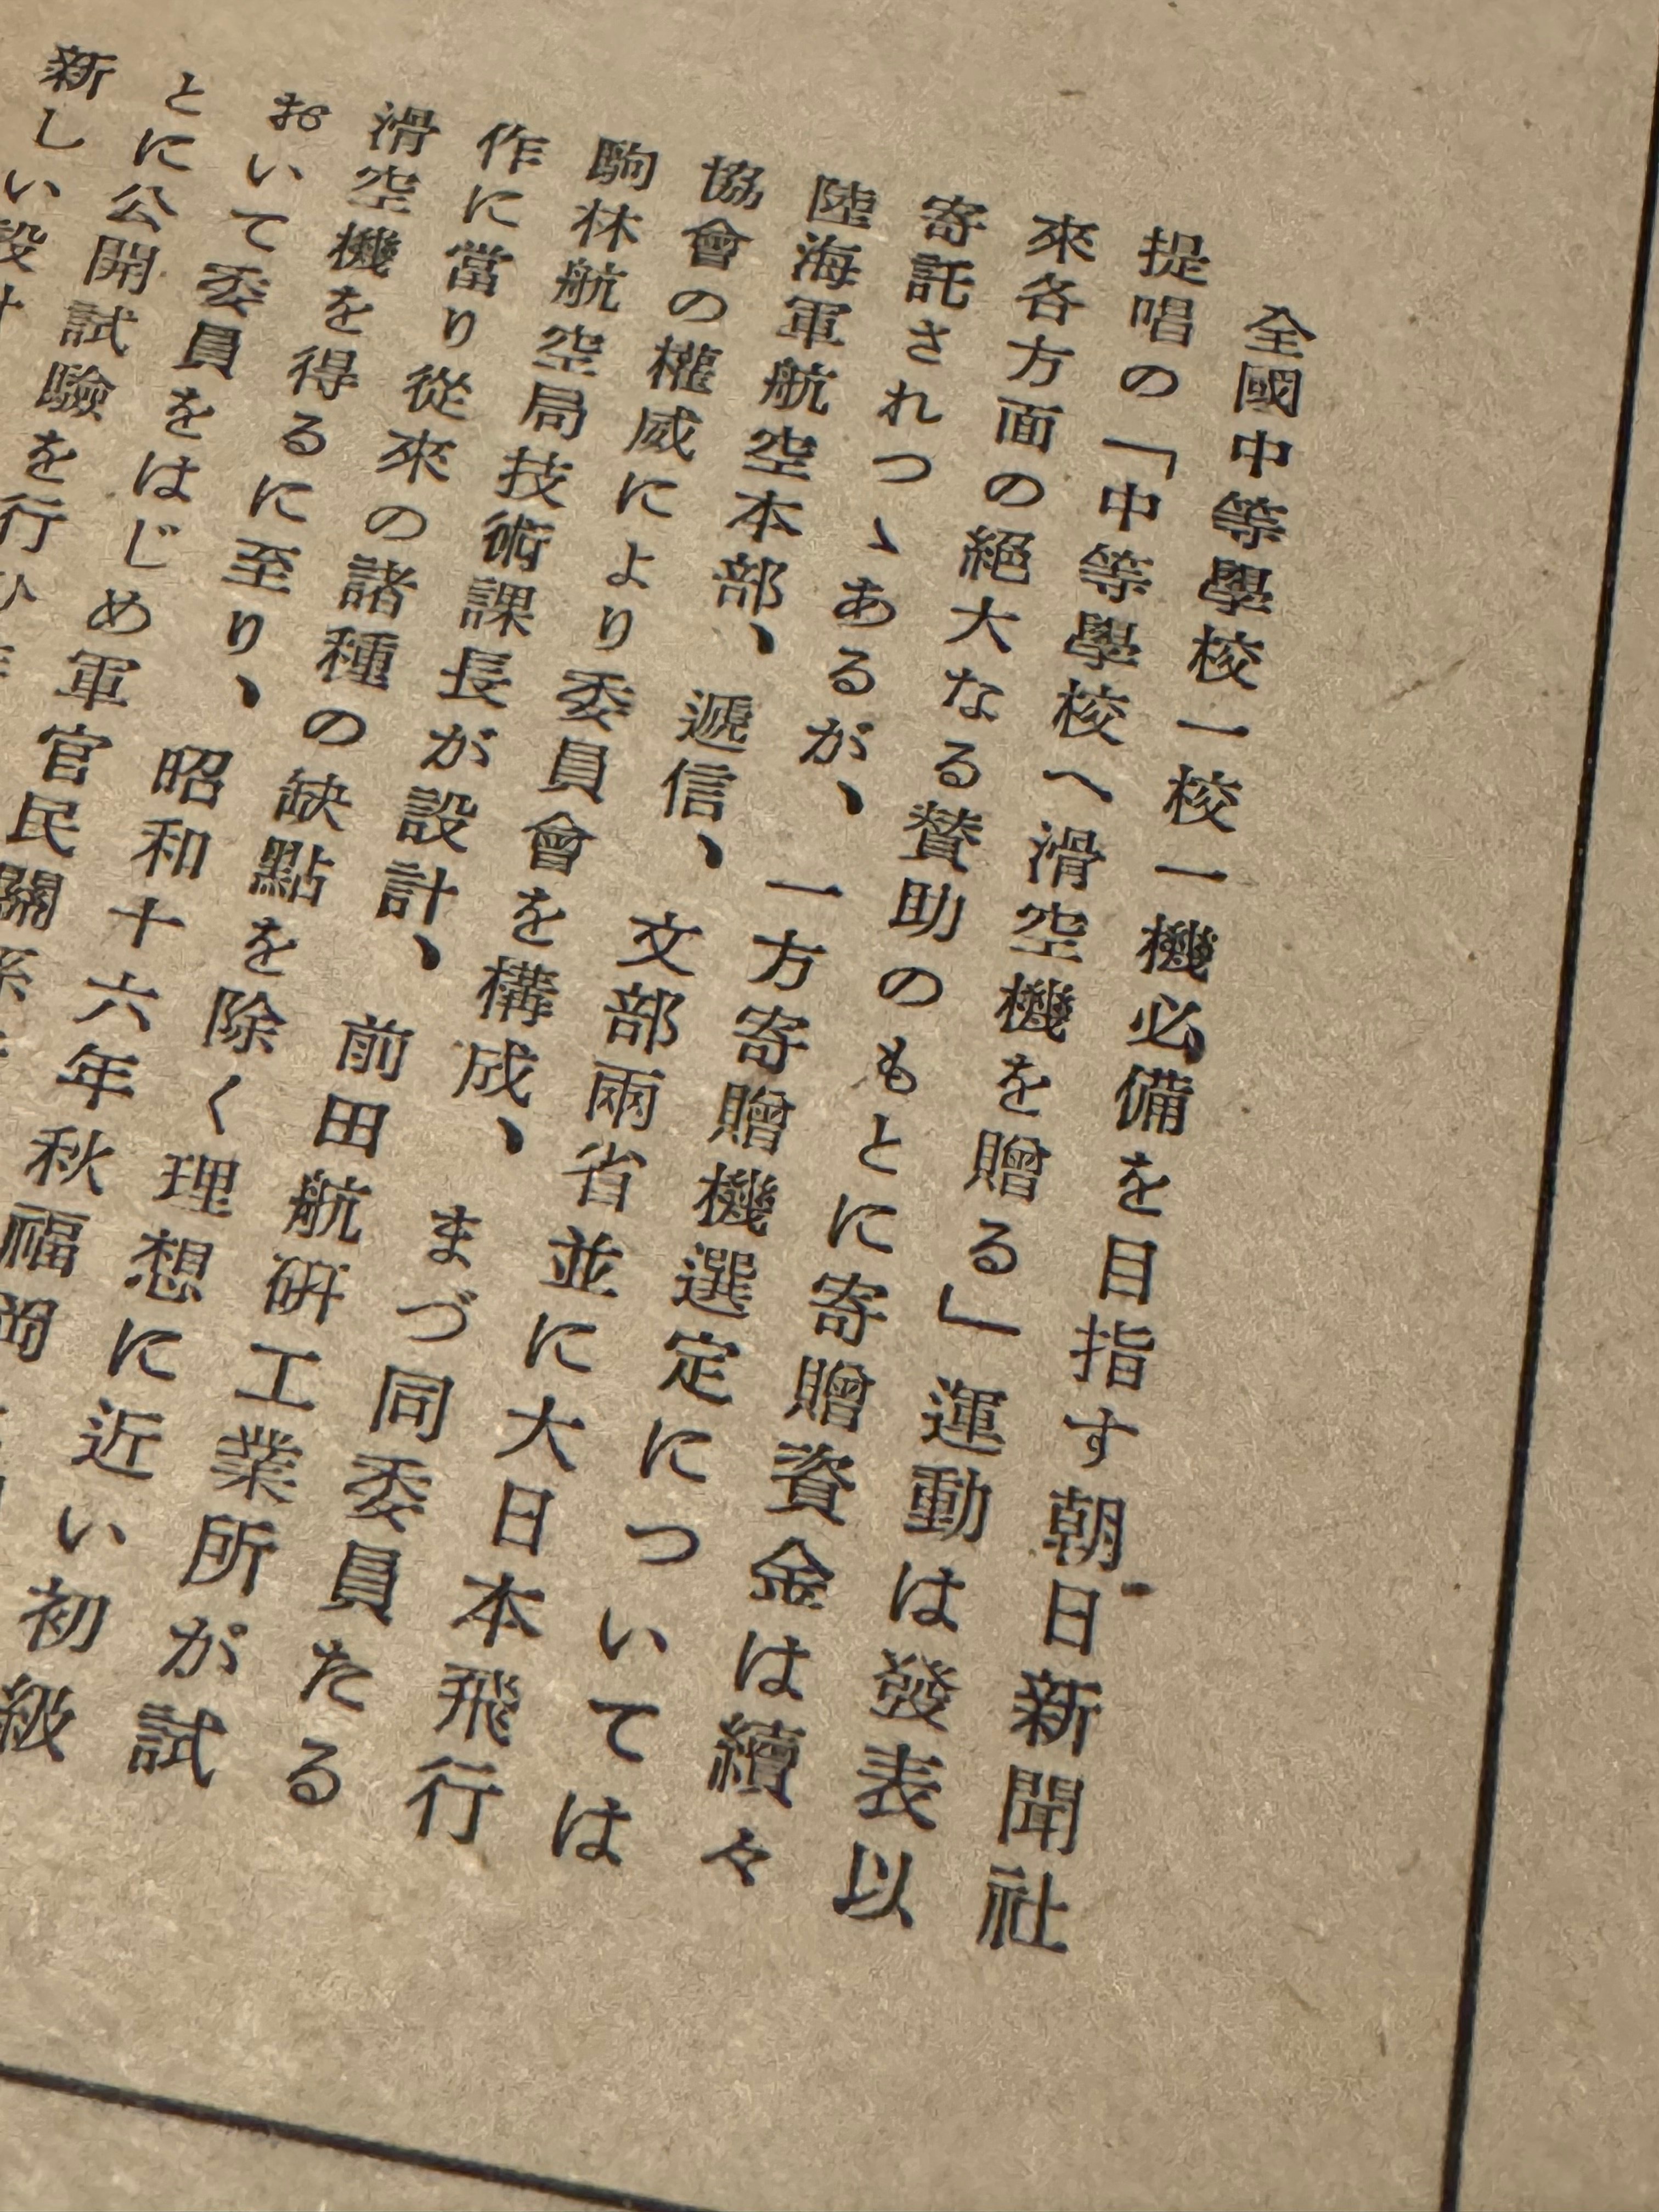 全國中等學校一校一機必備を目指す朝日新聞社
提唱の「中等學校へ滑空機を贈る」運動は發表以
來各方面の絕大なる賛助のもとに寄贈資金は續々
寄託されつゝあるが、一方寄贈機選定については
陸海軍航空本部、遞信、文部兩省並に大日本飛行
協會の權威により委員會を構成、まづ同委員たる
駒林航空局技術課長が設計、前田航硏工業所が試
作に當り從來の諸種の缺點を除く理想に近い初級
滑空機を得るに至り、昭和十六年秋福岡
おいて委員をはじめ軍官民關係
とに公開試驗を行ひ
新しい設計